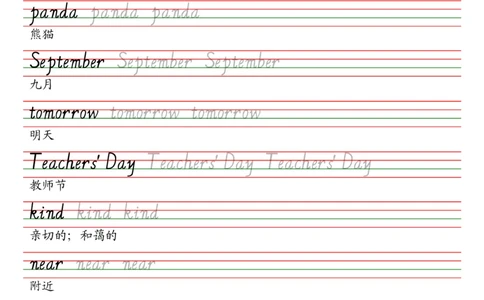 panda panda panda
熊猫
September September September
九月
tomorrow tomorrow tomorrow
明天
Teachers' Day Teachers' Day Teachers' Day
教师节
kind kind kind
亲切的；和蔼的
near near near
附近